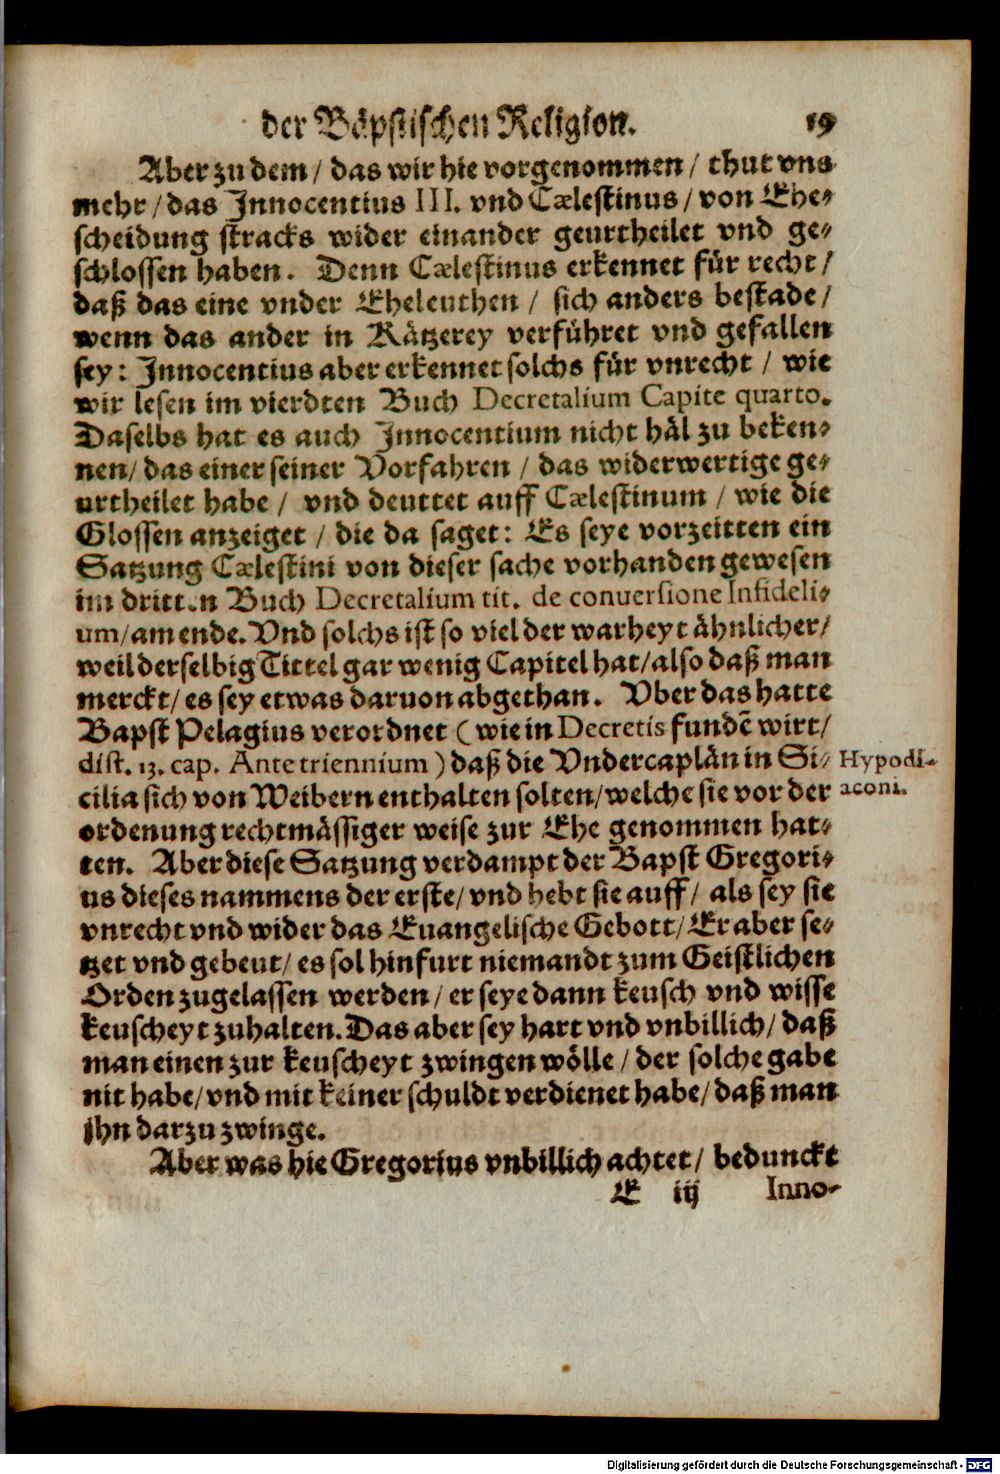 der Bäpstischen Religion. 19
Aber zu dem / das wir hie vorgenommen / thut vns
mehr / das Innocentius III. vnd Cælestinus / von Ehe-
scheidung stracks wider einander geurtheilet vnd ge-
schlossen haben. Denn Cælestinus erkennet für recht /
daß das eine vnder Eheleuthen / sich anders bestade /
wenn das ander in Kätzerey verführet vnd gefallen
sey: Innocentius aber erkennet solchs für vnrecht / wie
wir lesen im vierdten Buch Decretalium Capite quarto.
Daselbs hat es auch Innocentium nicht häl zu beken-
nen / das einer seiner Vorfahren / das widerwertige ge-
urtheilet habe / vnd deuttet auff Cælestinum / wie die
Glossen anzeiget / die da saget: Es seye vorzeitten ein
Satzung Cælestini von dieser sache vorhanden gewesen
im dritten Buch Decretalium tit. de conuersione Infideli-
um / am ende. Vnd solchs ist so viel der warheyt ähnlicher /
weil derselbig Tittel gar wenig Capitel hat / also daß man
merckt / es sey etwas daruon abgethan. Vber das hatte
Bapst Pelagius verordnet ( wie in Decretis fundē wirt /
dist. 13. cap. Ante triennium ) daß die Vndercaplän in Si-
cilia sich von Weibern enthalten solten / welche sie vor der
ordenung rechtmässiger weise zur Ehe genommen hat-
ten. Aber diese Satzung verdampt der Bapst Gregori-
us dieses nammens der erste / vnd hebt sie auff / als sey sie
vnrecht vnd wider das Euangelische Gebott / Er aber se-
tzet vnd gebeut / es sol hinfurt niemandt zum Geistlichen
Orden zugelassen werden / er seye dann keusch vnd wisse
keuscheyt zuhalten. Das aber sey hart vnd vnbillich / daß
man einen zur keuscheyt zwingen wölle / der solche gabe
nit habe / vnd mit keiner schuldt verdienet habe / daß man
jhn darzu zwinge.
Aber was hie Gregorius vnbillich achtet / beduncket
E iij Inno-
Hypodi-
aconi.
Digitalisierung gefördert durch die Deutsche Forschungsgemeinschaft - DFG